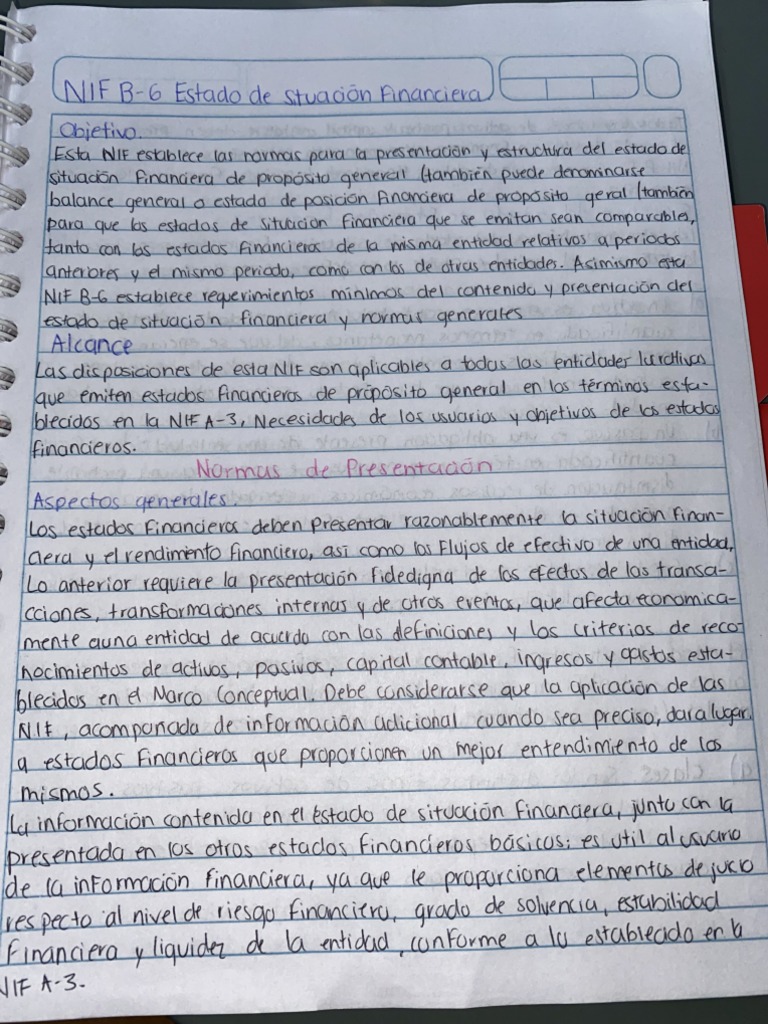 NIF B-6 Estado de stuación Financiera
Objetivo.
Esta NIF establece las normas para la presentación y estructura del estado de
situación Financiera de proposito general (también puede denominarse
balance general o estado de posición Financiera de proposito geral (también
para que los estados de situacion financiera que se emitan sean comparables,
tanto con los estados Financieros de la misma entidad relativos a periodos
anteriores y el mismo periodo, como con los de otras entidades. Asimismo esta
NIF B-6 establece requerimientos minimos del contenido y presentación del
estado de situación financiera y normas generales
Alcance
Las disposiciones de esta NIF son aplicables a todas las entidades lucrativas
que emiten estados Financieros de propósito general en los términos esta-
blecidos en la NIF A-3, Necesidades de los usuarios y objetivos de los estados
financieros.
Normas de Presentación
Aspectos generales.
Los estados Financieros deben Presentar razonablemente la situación Finan-
ciera y el rendimiento financiero, asi como los Flujos de efectivo de una entidad,
Lo anterior requiere la presentación Fidedigna de los efectos de las transa-
cciones, transformaciones internas y de otros eventos, que afecta economica-
mente a una entidad de acuerdo con las definiciones y los criterios de reco-
nocimientos de activos, pasivos, capital contable, ingresos y gastos esta-
blecidos en el Marco Conceptual. Debe considerarse que la aplicación de las
NIF, acompanada de información adicional cuando sea preciso, dara lugar
a estados Financieros que proporcionen un mejor entendimiento de los
mismos.
La información contenida en el Estado de situación Financiera, junto con la
presentada en los otros estados Financieros básicos; es util al usuario
de la información Financiera, ya que le proporciona elementos de juicio
respecto al nivel de riesgo Financiero, grado de solvencia, estabilidad
Financiera y liquidez de la entidad, conforme a lo establecido en la
NIF A-3.